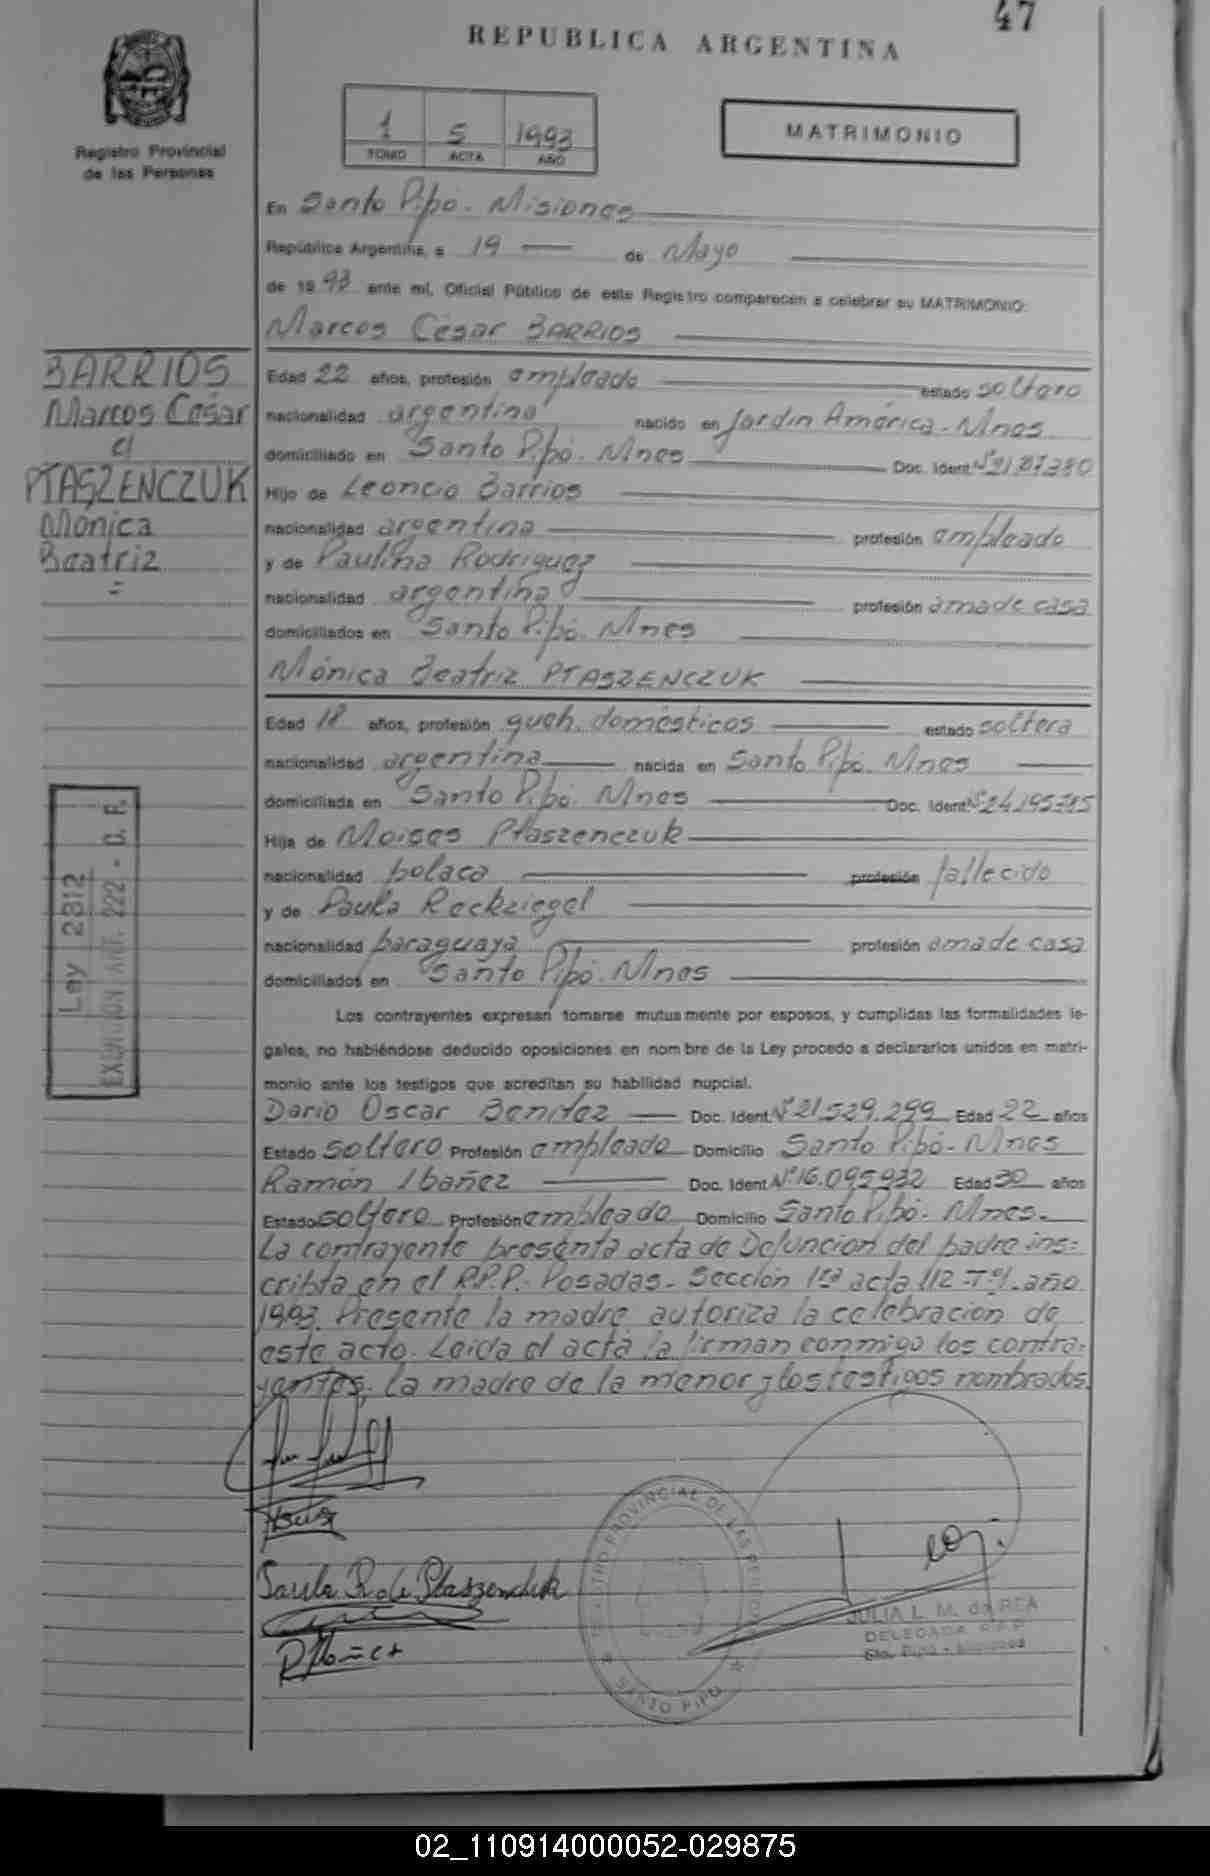 47
REPUBLICA ARGENTINA
Registro Provincial
de las Personas
1 5 1993
TOMO ACTA AÑO
MATRIMONIO
En Santo Pipó - Misiones
República Argentina, a 19 de Mayo
de 1993 ante mí, Oficial Público de este Registro comparecen a celebrar su MATRIMONIO:
Marcos César BARRIOS
BARRIOS
Marcos César
c/
PTASZENCZUK
Mónica
Beatriz
=
Edad 22 años, profesión empleado estado soltero
nacionalidad argentina nacido en Jardín América - Mnes
domiciliado en Santo Pipó. Mnes Doc. Ident. Nº
Hijo de Leoncio Barrios
nacionalidad argentina profesión empleado
y de Paulina Rodriguez
nacionalidad argentina profesión ama de casa
domiciliados en Santo Pipó. Mnes
Mónica Beatriz PTASZENCZUK
Edad 18 años, profesión queh. domésticos estado soltera
nacionalidad argentina nacida en Santo Pipó. Mnes
domiciliada en Santo Pipó. Mnes Doc. Ident. Nº 24.195.785
Hija de Moises Ptaszenczuk
nacionalidad polaca profesión fallecido
y de Paula Reckziegel
nacionalidad paraguaya profesión ama de casa
domiciliados en Santo Pipó. Mnes
Ley 2812
EXENCION ART. 222 - C. F.
Los contrayentes expresan tomarse mutuamente por esposos, y cumplidas las formalidades le-
gales, no habiéndose deducido oposiciones en nombre de la Ley procedo a declararlos unidos en matri-
monio ante los testigos que acreditan su habilidad nupcial.
Dario Oscar Benítez Doc. Ident. Nº 21.529.299 Edad 22 años
Estado soltero Profesión empleado Domicilio Santo Pipó - Mnes
Ramón Ibañez Doc. Ident Nº 16.095.932 Edad 30 años
Estado soltero Profesión empleado Domicilio Santo Pipó - Mnes.
La contrayente presenta acta de Defunción del padre ins=
cripta en el R.P.P. Posadas - Sección 1ra acta 112 - Tº1 - año
1993. Presente la madre autoriza la celebración de
este acto. Leida el acta la firman conmigo los contra-
yentes, la madre de la menor y los testigos nombrados.
Paula R. de Ptaszenchuk
REGISTRO PROVINCIAL DE LAS PERSONAS
SANTO PIPO
JULIA L. M. de REA
DELEGADA R.P.P.
Sto. Pipó - Misiones
02_110914000052-029875